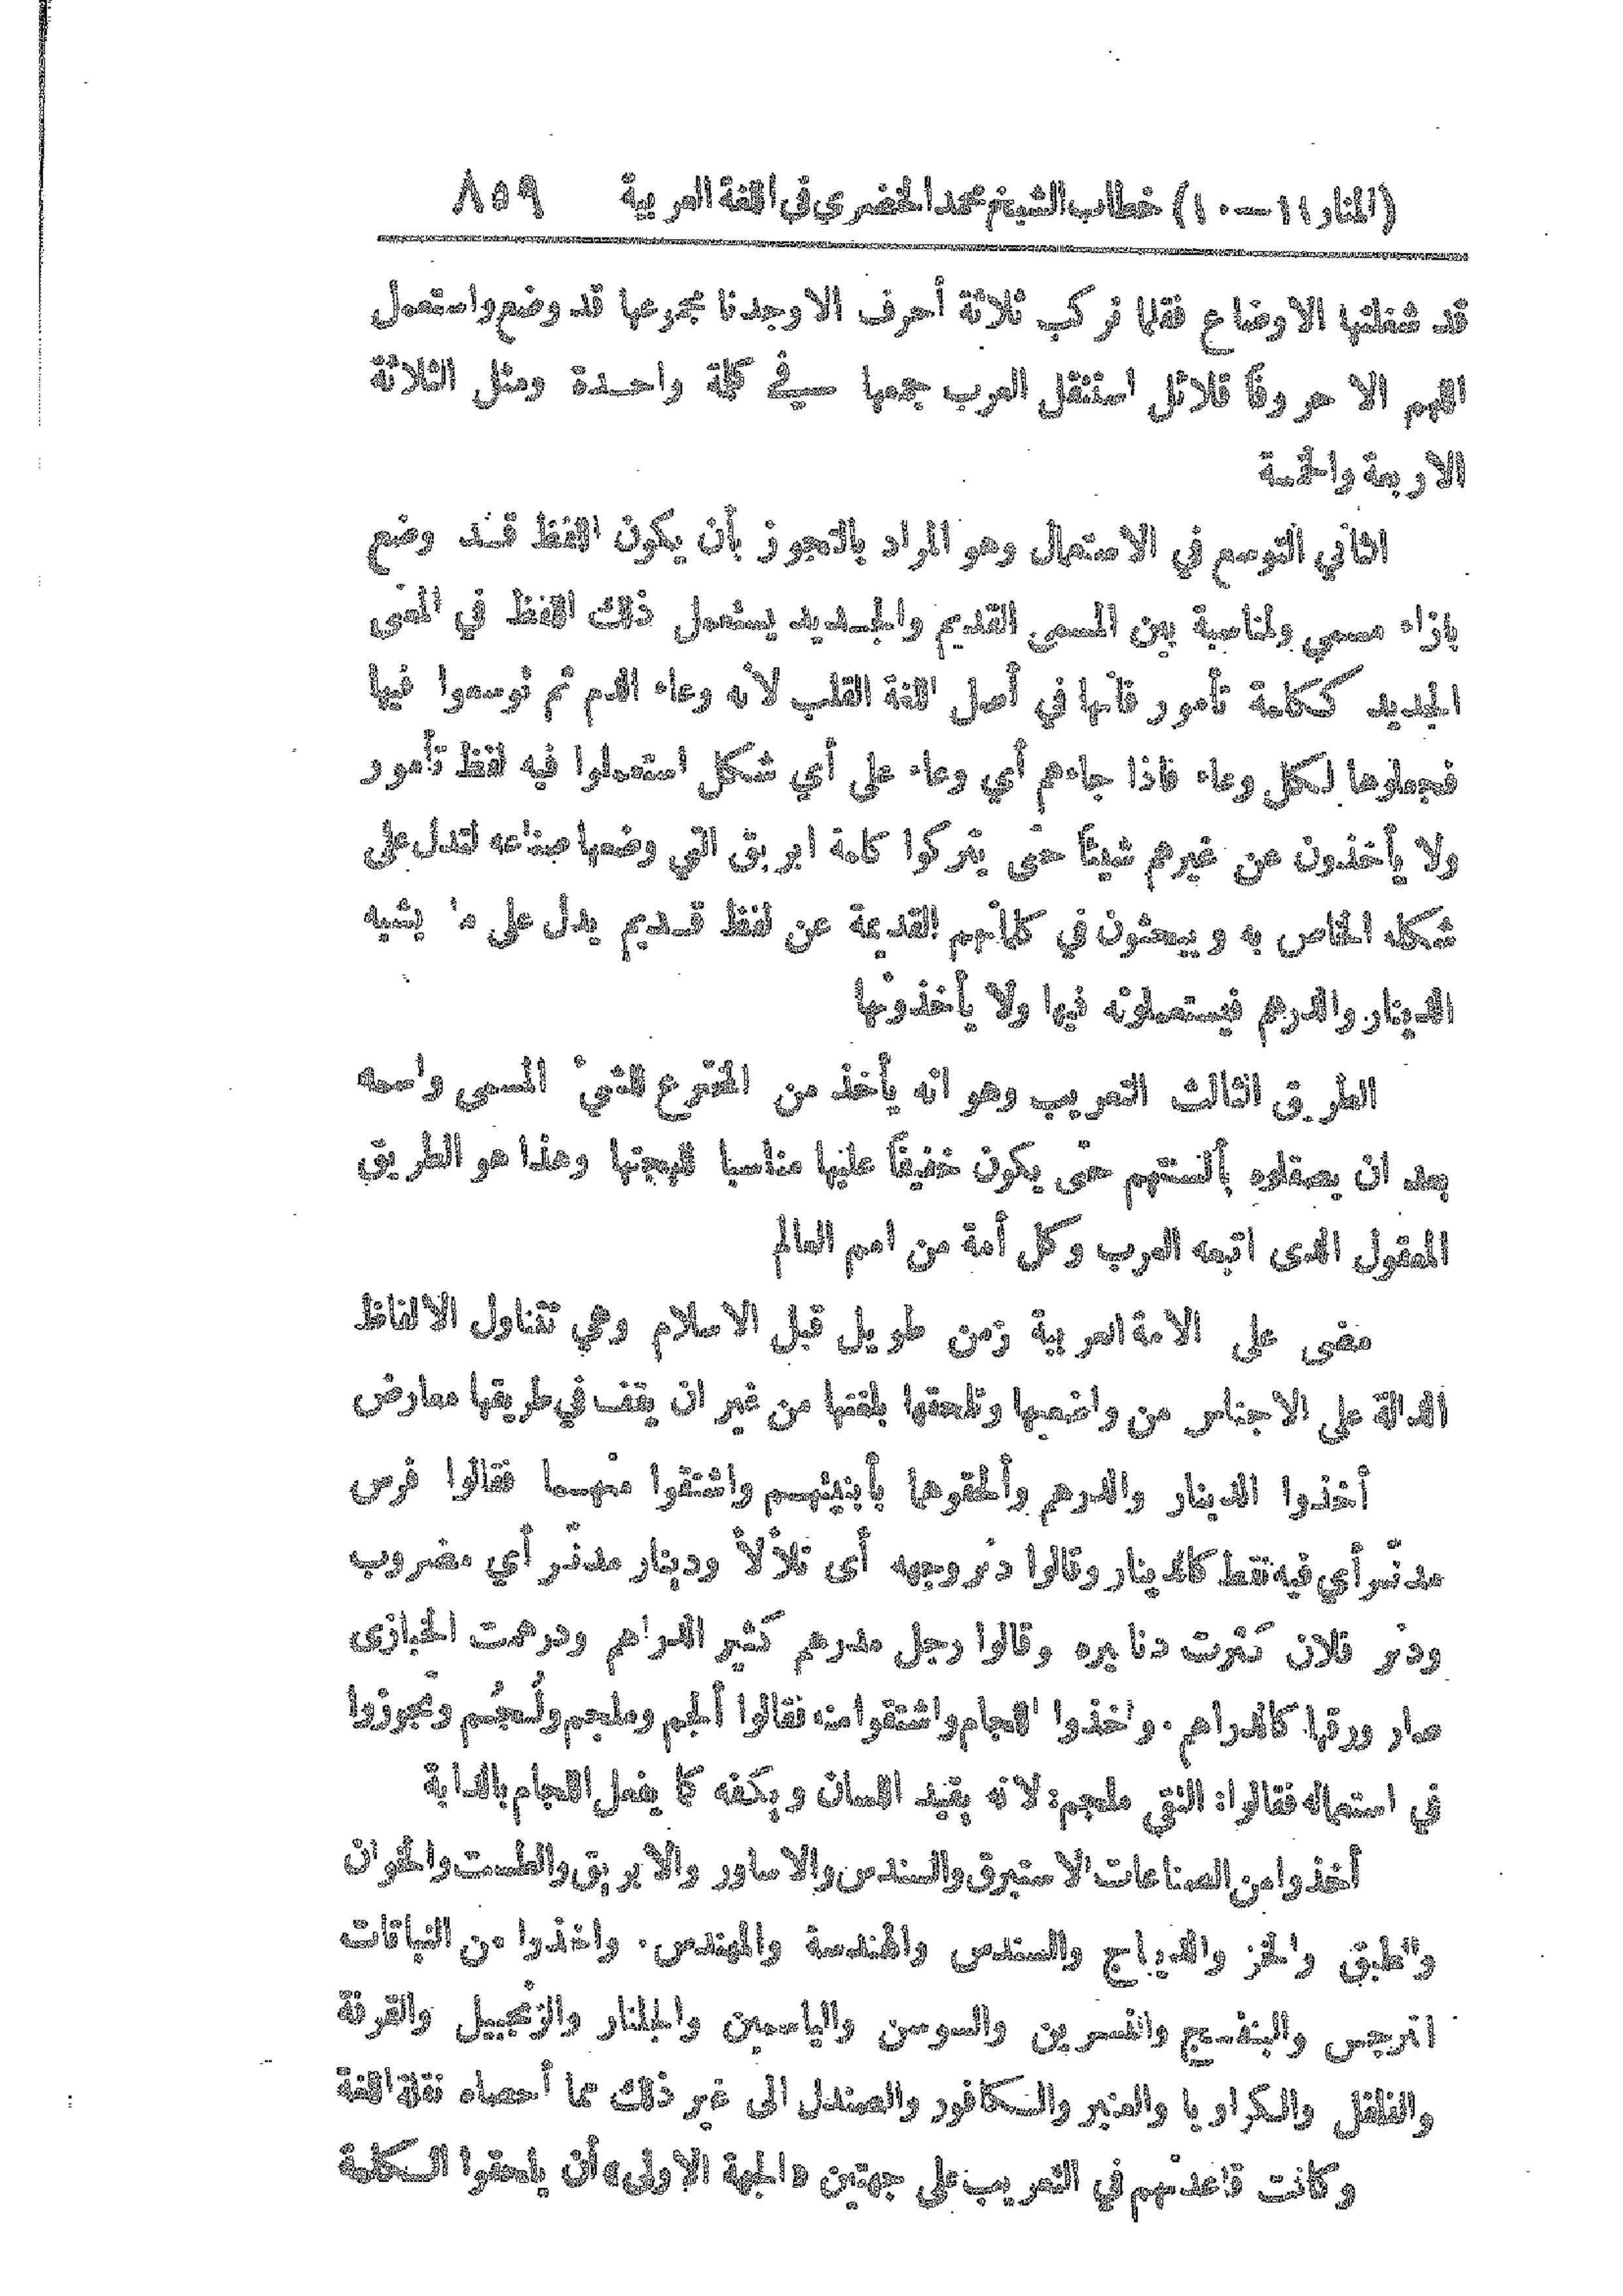 (المنار ١١–١٠) خطاب الشيخ محمد الخضري في اللغة العربية ٨٥٩
قد شغلتها الاوضاع فقلما تركب ثلاثة أحرف الا وجدنا مجموعها قد وضع واستعمل
اللهم الا حروفاً قلائل استثقل العرب جمعها في كلمة واحدة ومثل الثلاثة
الاربعة والخمسة
الثاني التوسع في الاستعمال وهو المراد بالتجوز بأن يكون اللفظ قد وضع
بازاء مسمى ولمناسبة بين المسمى القديم والجديد يستعمل ذلك اللفظ في المعنى
الجديد ككلمة تأمور فانها في أصل اللغة القلب لأنه وعاء الدم ثم توسعوا فيها
فجعلوها لكل وعاء فاذا جاءهم أي وعاء على أي شكل استعملوا فيه لفظ تأمور
ولا يأخذون عن غيرهم شيئاً حتى يتركوا كلمة ابريق التي وضعها صناعه لتدل على
شكله الخاص به ويبحثون في كلماتهم القديمة عن لفظ قديم يدل على ما يشبه
الدينار والدرهم فيستعملونه فيها ولا يأخذونها
الطريق الثالث التعريب وهو انه يأخذ من المخترع للشيء المسمى واسمه
بعد ان يصقلوه بألسنتهم حتى يكون خفيفاً عليها مناسبا للهجتها وهذا هو الطريق
المعقول الذى اتبعه العرب وكل أمة من امم العالم
مضى على الامة العربية زمن طويل قبل الاسلام وهي تتناول الالفاظ
الدالة على الاجناس من واضعيها وتلحقها بلغتها من غير ان يقف في طريقها معارض
أخذوا الدينار والدرهم وألحقوهما بأبنيتهم واشتقوا منهما فقالوا فرس
مدنّر أي فيه نقط كالدينار وقالوا دنر وجهه أى تلألأ ودينار مدنّر أي مضروب
ودنر فلان كثرت دنانيره وقالوا رجل مدرهم كثير الدراهم ودرهمت الخبازى
صار ورقها كالدراهم . واخذوا اللجام واشتقوا منه فقالوا ألجم وملجم ولُجُم وتجوزوا
في استعماله فقالوا: التقي ملجم: لانه يقيد اللسان ويكفه كما يفعل اللجام بالدابة
أخذوا من الصناعات الاستبرق والسندس والاساور والابريق والطست والخوان
والطبق والخز والديباج والسندس والهندسة والمهندس . واخذوا من النباتات
النرجس والبنفسج والنسرين والسوسن والياسمين والجلنار والزنجبيل والقرفة
والفلفل والكراويا والعنبر والكافور والصندل الى غير ذلك مما أحصاه نقلة اللغة
وكانت قاعدتهم في التعريب على جهتين «الجهة الاولى» أن يلحقوا الكلمة